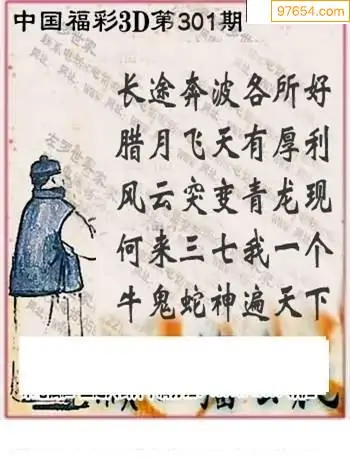 97654.com
中国福彩3D第301期
长途奔波各所好
腊月飞天有厚利
风云突变青龙现
何来三七我一个
牛鬼蛇神遍天下